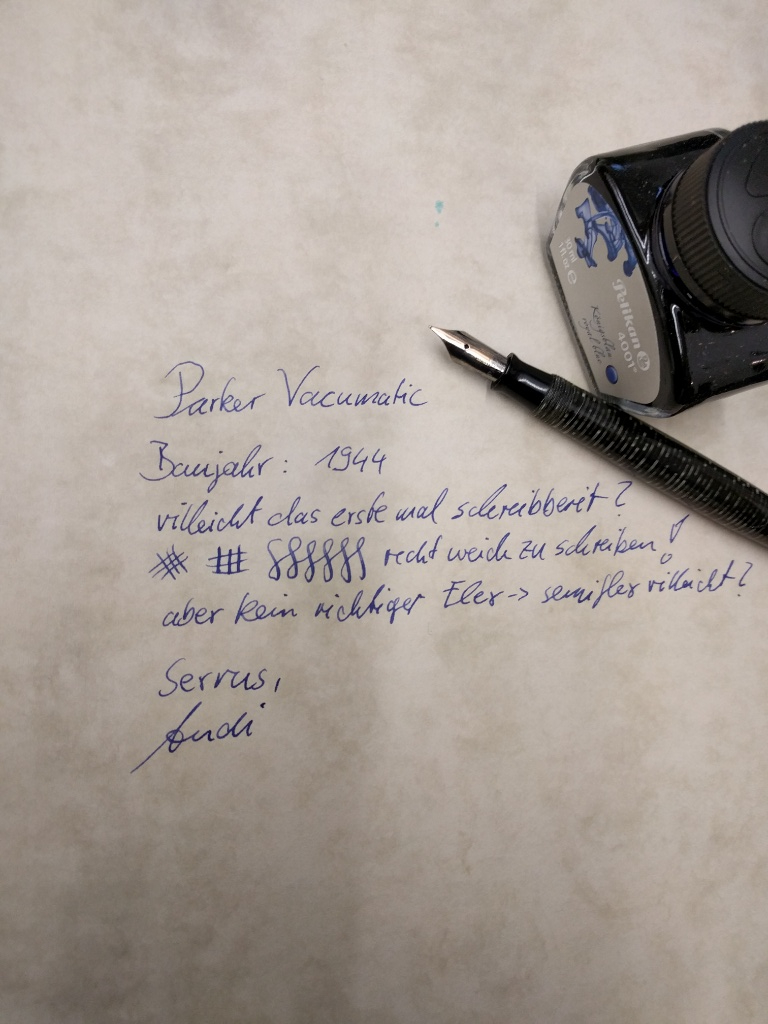 10 ml
1 fl.oz e
Pelikan
4001®
Königsblau
royal blue
Parker Vacumatic
Baujahr: 1944
villeicht das erste mal schreibbereit?
recht weich zu schreiben!
aber kein richtiger Flex -> semiflex villeicht?
Servus,
Andi